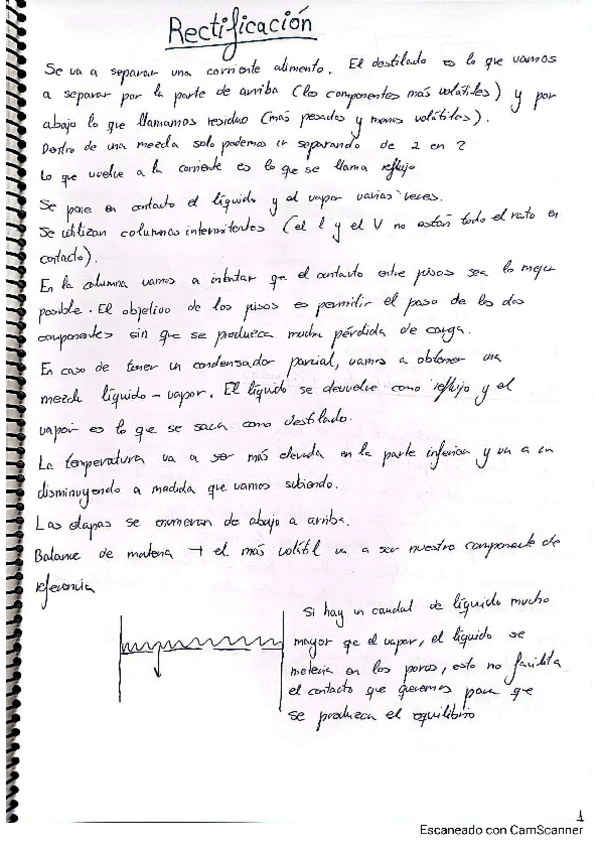 Rectificación
Se va a separar una corriente alimento. El destilado es lo que vamos
a separar por la parte de arriba (los componentes más volátiles) y por
abajo lo que llamamos residuo (más pesados y menos volátiles).
Dentro de una mezcla solo podemos ir separando de 2 en 2
Lo que vuelve a la corriente es lo que se llama reflujo
Se pone en contacto el líquido y el vapor varias veces.
Se utilizan columnas intermitentes (el l y el V no están todo el rato en
contacto).
En la columna vamos a intentar que el contacto entre pisos sea lo mejor
posible. El objetivo de los pisos es permitir el paso de los dos
componentes sin que se produzca mucha pérdida de carga.
En caso de tener un condensador parcial, vamos a obtener una
mezcla líquido-vapor. El líquido se devuelve como reflujo y el
vapor es lo que se saca como destilado.
La temperatura va a ser más elevada en la parte inferior y va a ir
disminuyendo a medida que vamos subiendo.
Las etapas se enumeran de abajo a arriba.
Balance de materia → el más volátil va a ser nuestro componente de
referencia
Si hay un caudal de líquido mucho
mayor que el vapor, el líquido se
metería en los poros, esto no facilita
el contacto que queremos para que
se produzca el equilibrio
1
Escaneado con CamScanner